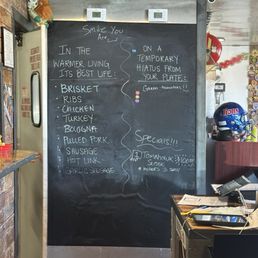 Smile You
Are
IN THE
WARMER LIVING
ITS BEST LIFE:
BRISKET
RIBS
CHICKEN
TURKEY
BOLOGNA
PULLED PORK
SAUSAGE
HOT LINK
GARLIC SAUSAGE
ON A
TEMPORARY
HIATUS FROM
YOUR PLATE:
Specials!!!
TOMAHAWK
STEAK